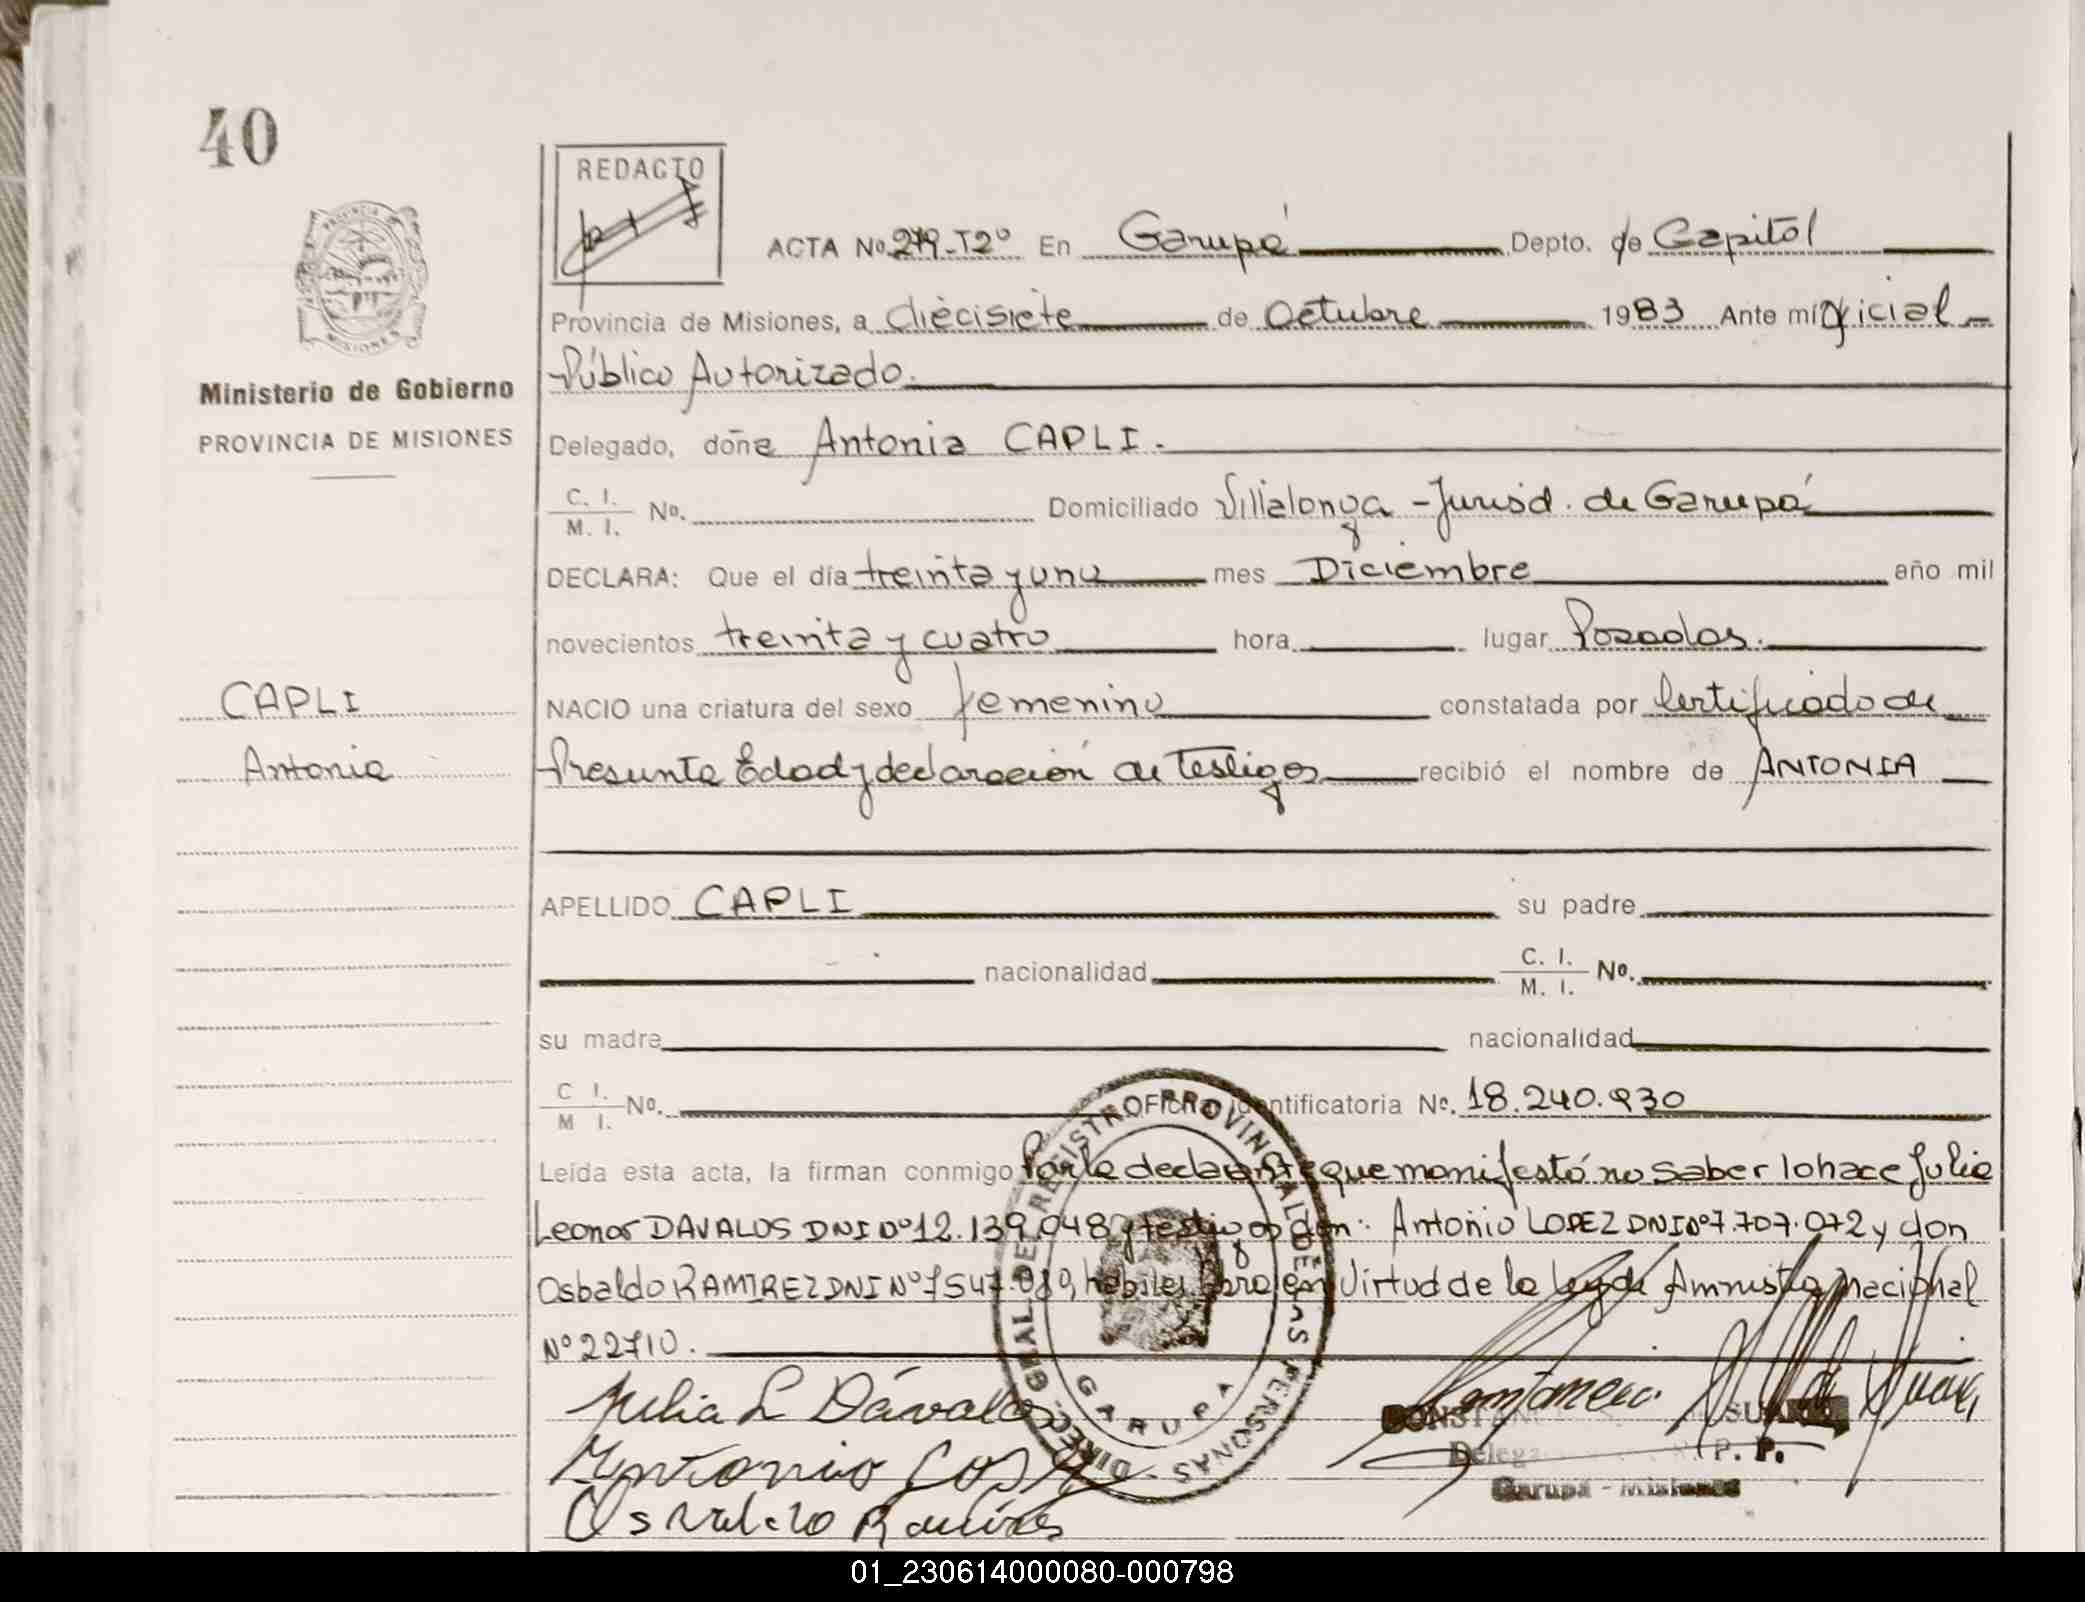 40
REDACTO
ACTA No. 279-T2º En Garupá Depto. de Capital
Provincia de Misiones, a diecisiete de Octubre 1983 Ante mí Oficial
Público Autorizado.
Ministerio de Gobierno
PROVINCIA DE MISIONES
PROVINCIA DE MISIONES
Delegado, doña Antonia CAPLI.
C. I.
M. I. No. Domiciliado Villalonga - Jurisd. de Garupá
DECLARA: Que el día treinta y uno mes Diciembre año mil
novecientos treinta y cuatro hora lugar Posadas.
CAPLI
Antonia
NACIO una criatura del sexo femenino constatada por Certificado de
Presunta Edad y declaración de Testigos recibió el nombre de ANTONIA
APELLIDO CAPLI su padre
nacionalidad C. I.
M. I. No.
su madre nacionalidad
C I.
M I. No. Ficha Identificatoria No. 18.240.930
Leída esta acta, la firman conmigo Por la declarante que manifestó no saber lo hace Julia
Leonor DAVALOS DNI Nº 12.139.048 y testigos don: Antonio LOPEZ DNI Nº 7.707.072 y don
Osbaldo RAMIREZ DNI Nº 7547.089, hábiles para en Virtud de la Ley de Amnistía nacional
Nº 22710.
DIREC. GRAL. DE REGISTRO PROVINCIAL DE LAS PERSONAS
GARUPA
Julia L Dávalos
Antonio
Osvaldo Ramires
P. P.
Garupá - Misiones
01_230614000080-000798